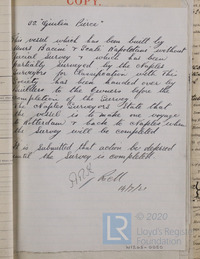 COPY.
SS. "Giulia Pierce"
This vessel which has been built by
Messrs Bacini & Scali Napoletani without
special survey & which has been
partially surveyed by the Naples
Surveyors for Classification with this
Society has been handed over by
builders to the Owners before the
completion of the Survey.
The Naples Surveyors state that
the vessel is to make one voyage
to Rotterdam & back to Naples when
the Survey will be completed
It is submitted that action be deferred
until the Survey is completed
© 2020
Lloyd's Register
Foundation